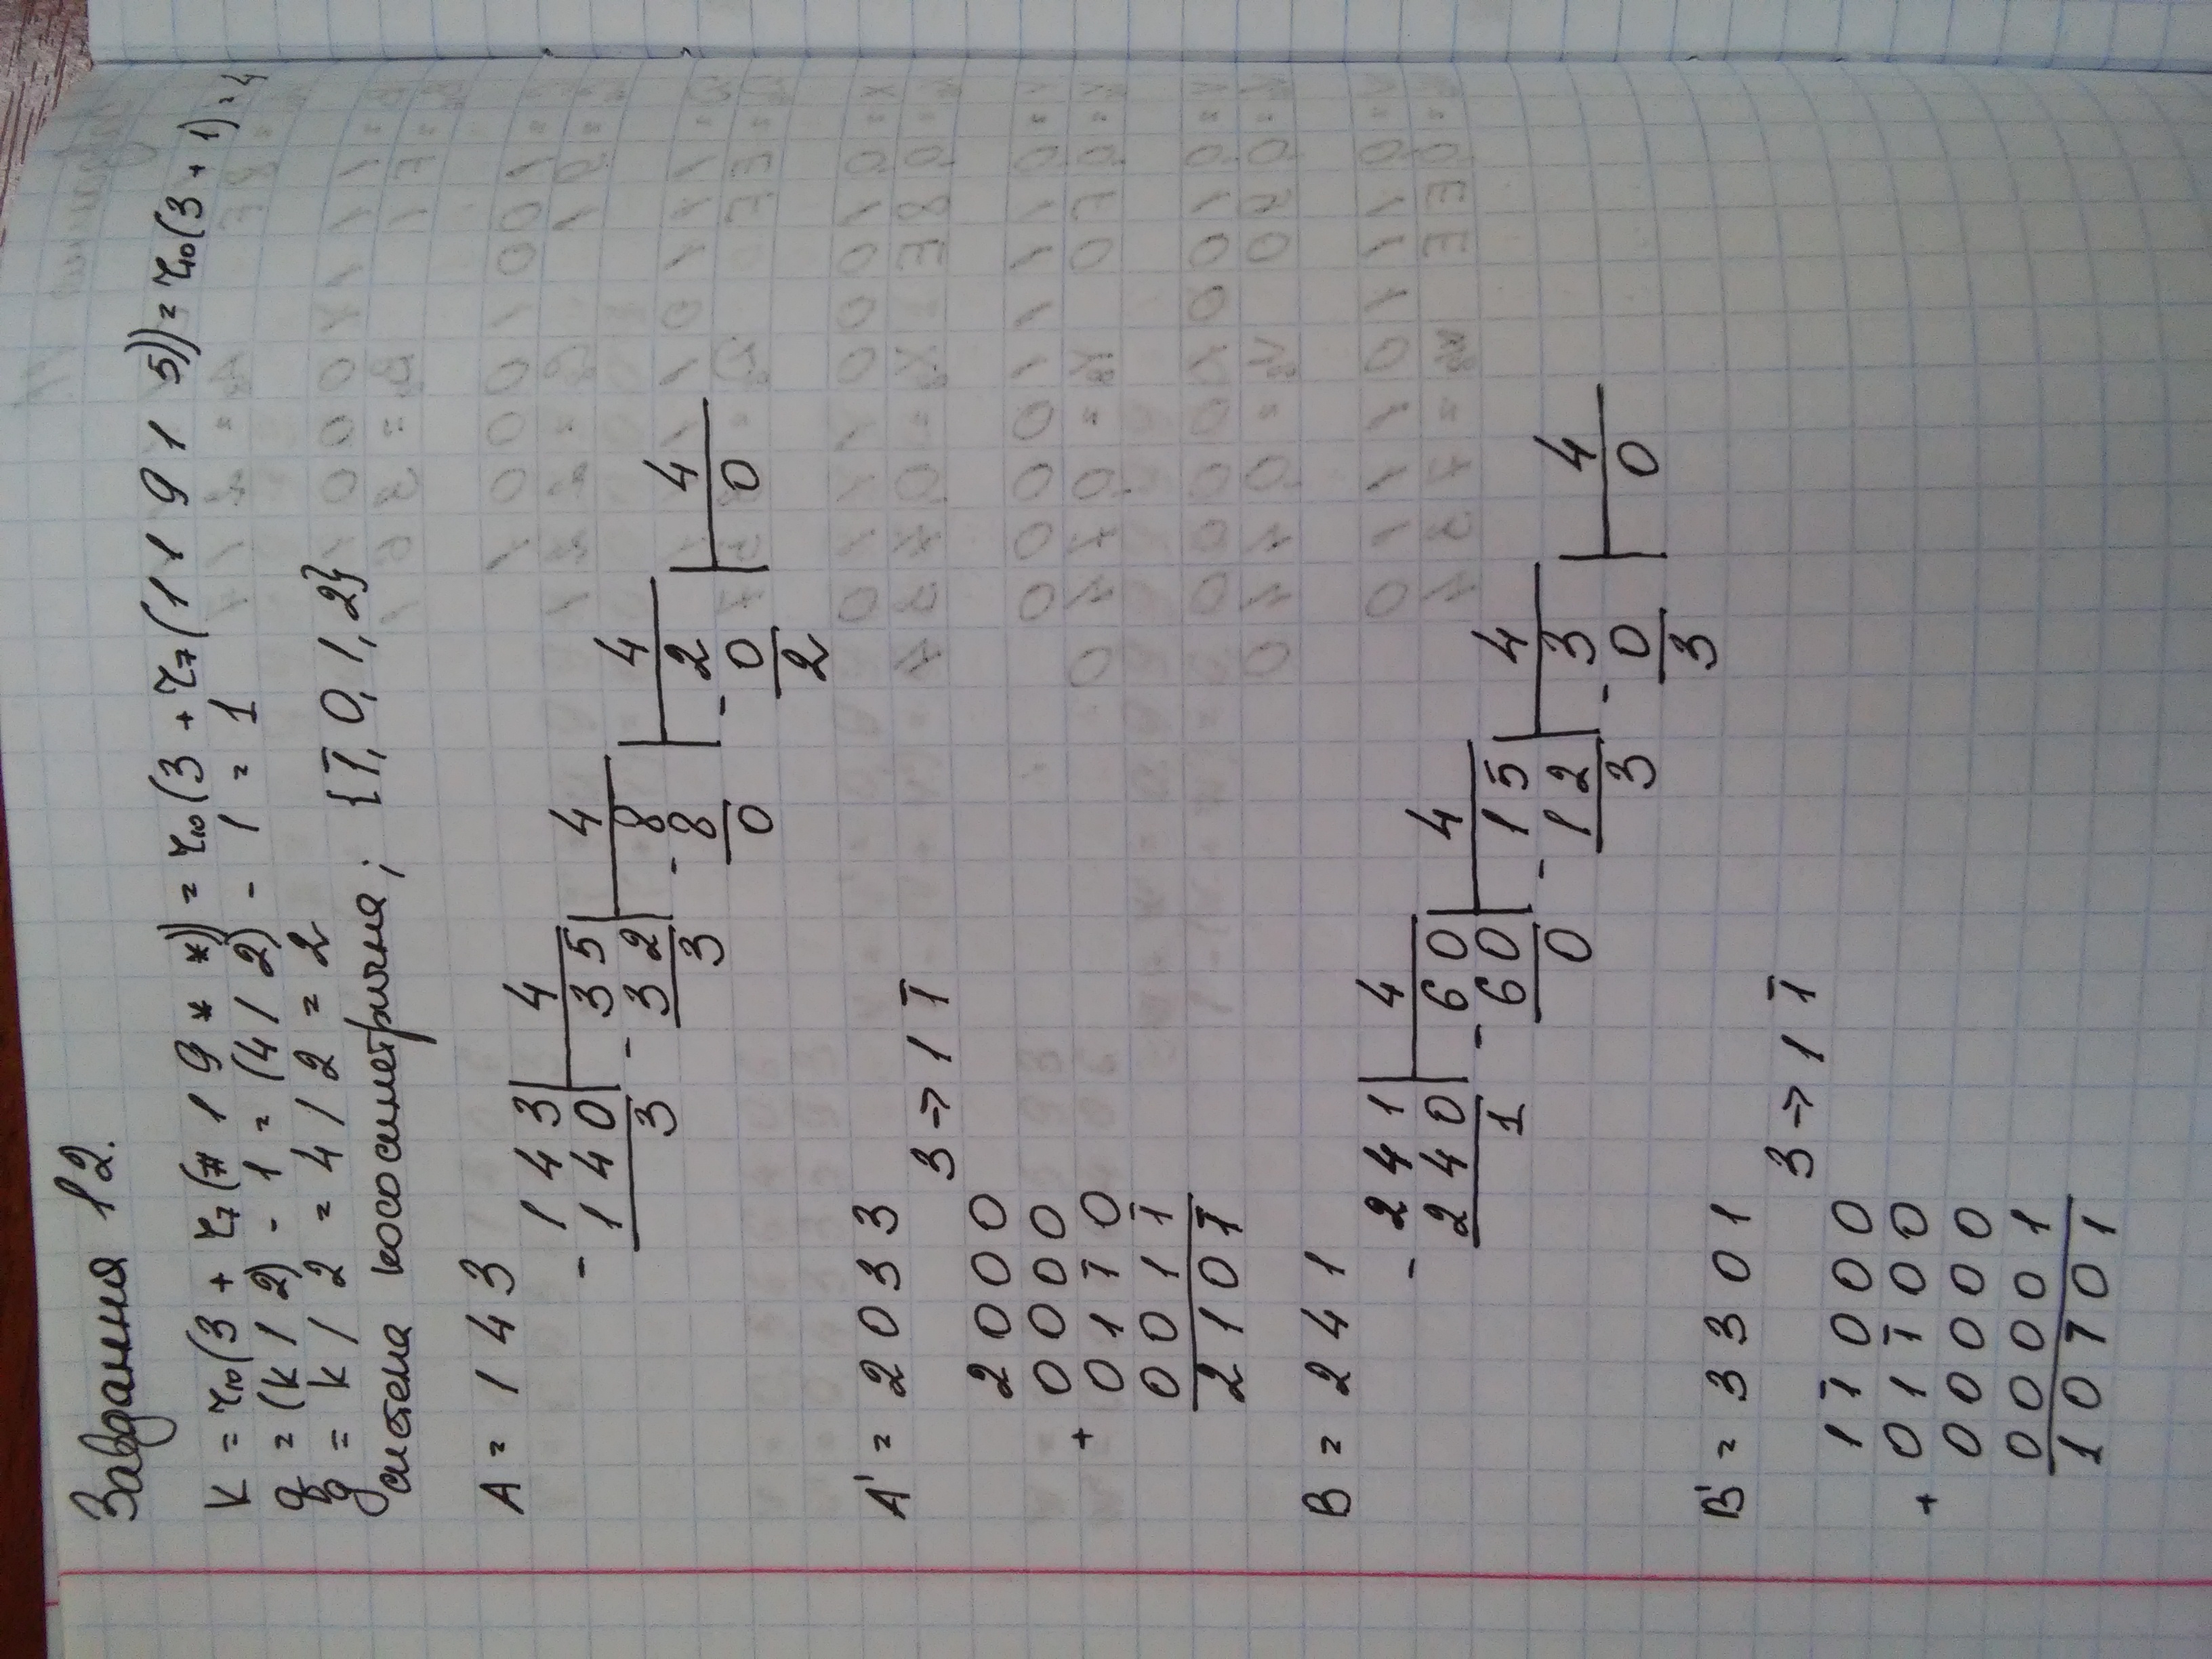 Завдання 12.
K = r₁₀(3 + r₇(# 1 9 * *)) = r₁₀(3 + r₇(1 1 9 1 5)) = r₁₀(3 + 1) = 4
q = (k / 2) - 1 = (4 / 2) - 1 = 1
g = k / 2 = 4 / 2 = 2
система кососиметрична; {1̅, 0, 1, 2}
A = 1 4 3
- 1 4 3 | 4
1 4 0 - 3 5 | 4
3 3 2 - 8 | 4
3 8 - 2 | 4
0 0 0
2
A' = 2 0 3 3
3 -> 1 1̅
2 0 0 0
0 0 0 0
+
0 1 1̅ 0
0 0 1 1̅
2 1 0 1̅
B = 2 4 1
- 2 4 1 | 4
2 4 0 - 6 0 | 4
1 6 0 - 1 5 | 4
0 1 2 - 3 | 4
3 0 0
3
B' = 3 3 0 1
3 -> 1 1̅
1 1̅ 0 0 0
0 1 1̅ 0 0
+
0 0 0 0 0
0 0 0 0 1
1 0 1̅ 0 1